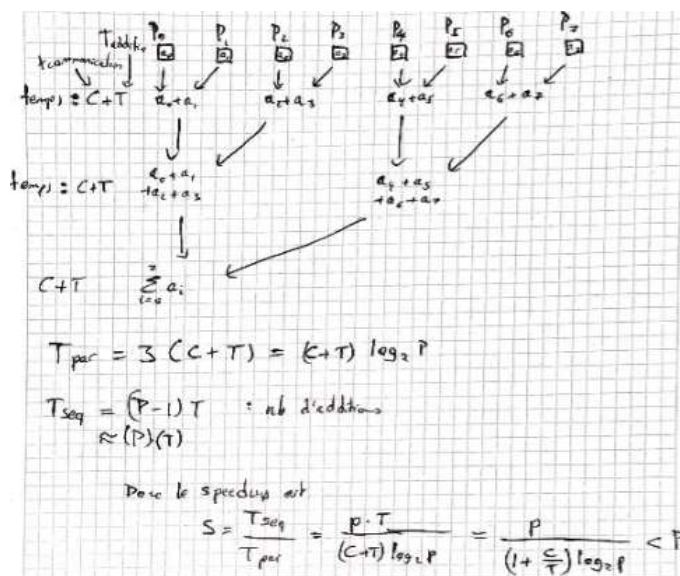 T addition P₀ P₁ P₂ P₃ P₄ P₅ P₆ P₇
T communication a₀ a₁ a₂ a₃ a₄ a₅ a₆ a₇
temps : C+T a₀+a₁ a₂+a₃ a₄+a₅ a₆+a₇
temps : C+T a₀+a₁ a₄+a₅
+a₂+a₃ +a₆+a₇
C+T Σ⁷ᵢ₌₀ aᵢ
T par = 3 (C+T) = (C+T) log₂ P
T seq = (P-1) T : nb d'additions
≈ (P)(T)
Donc le speedup est
S = T seq / T par = p·T / (C+T) log₂ p = P / (1 + C/T) log₂ p < P